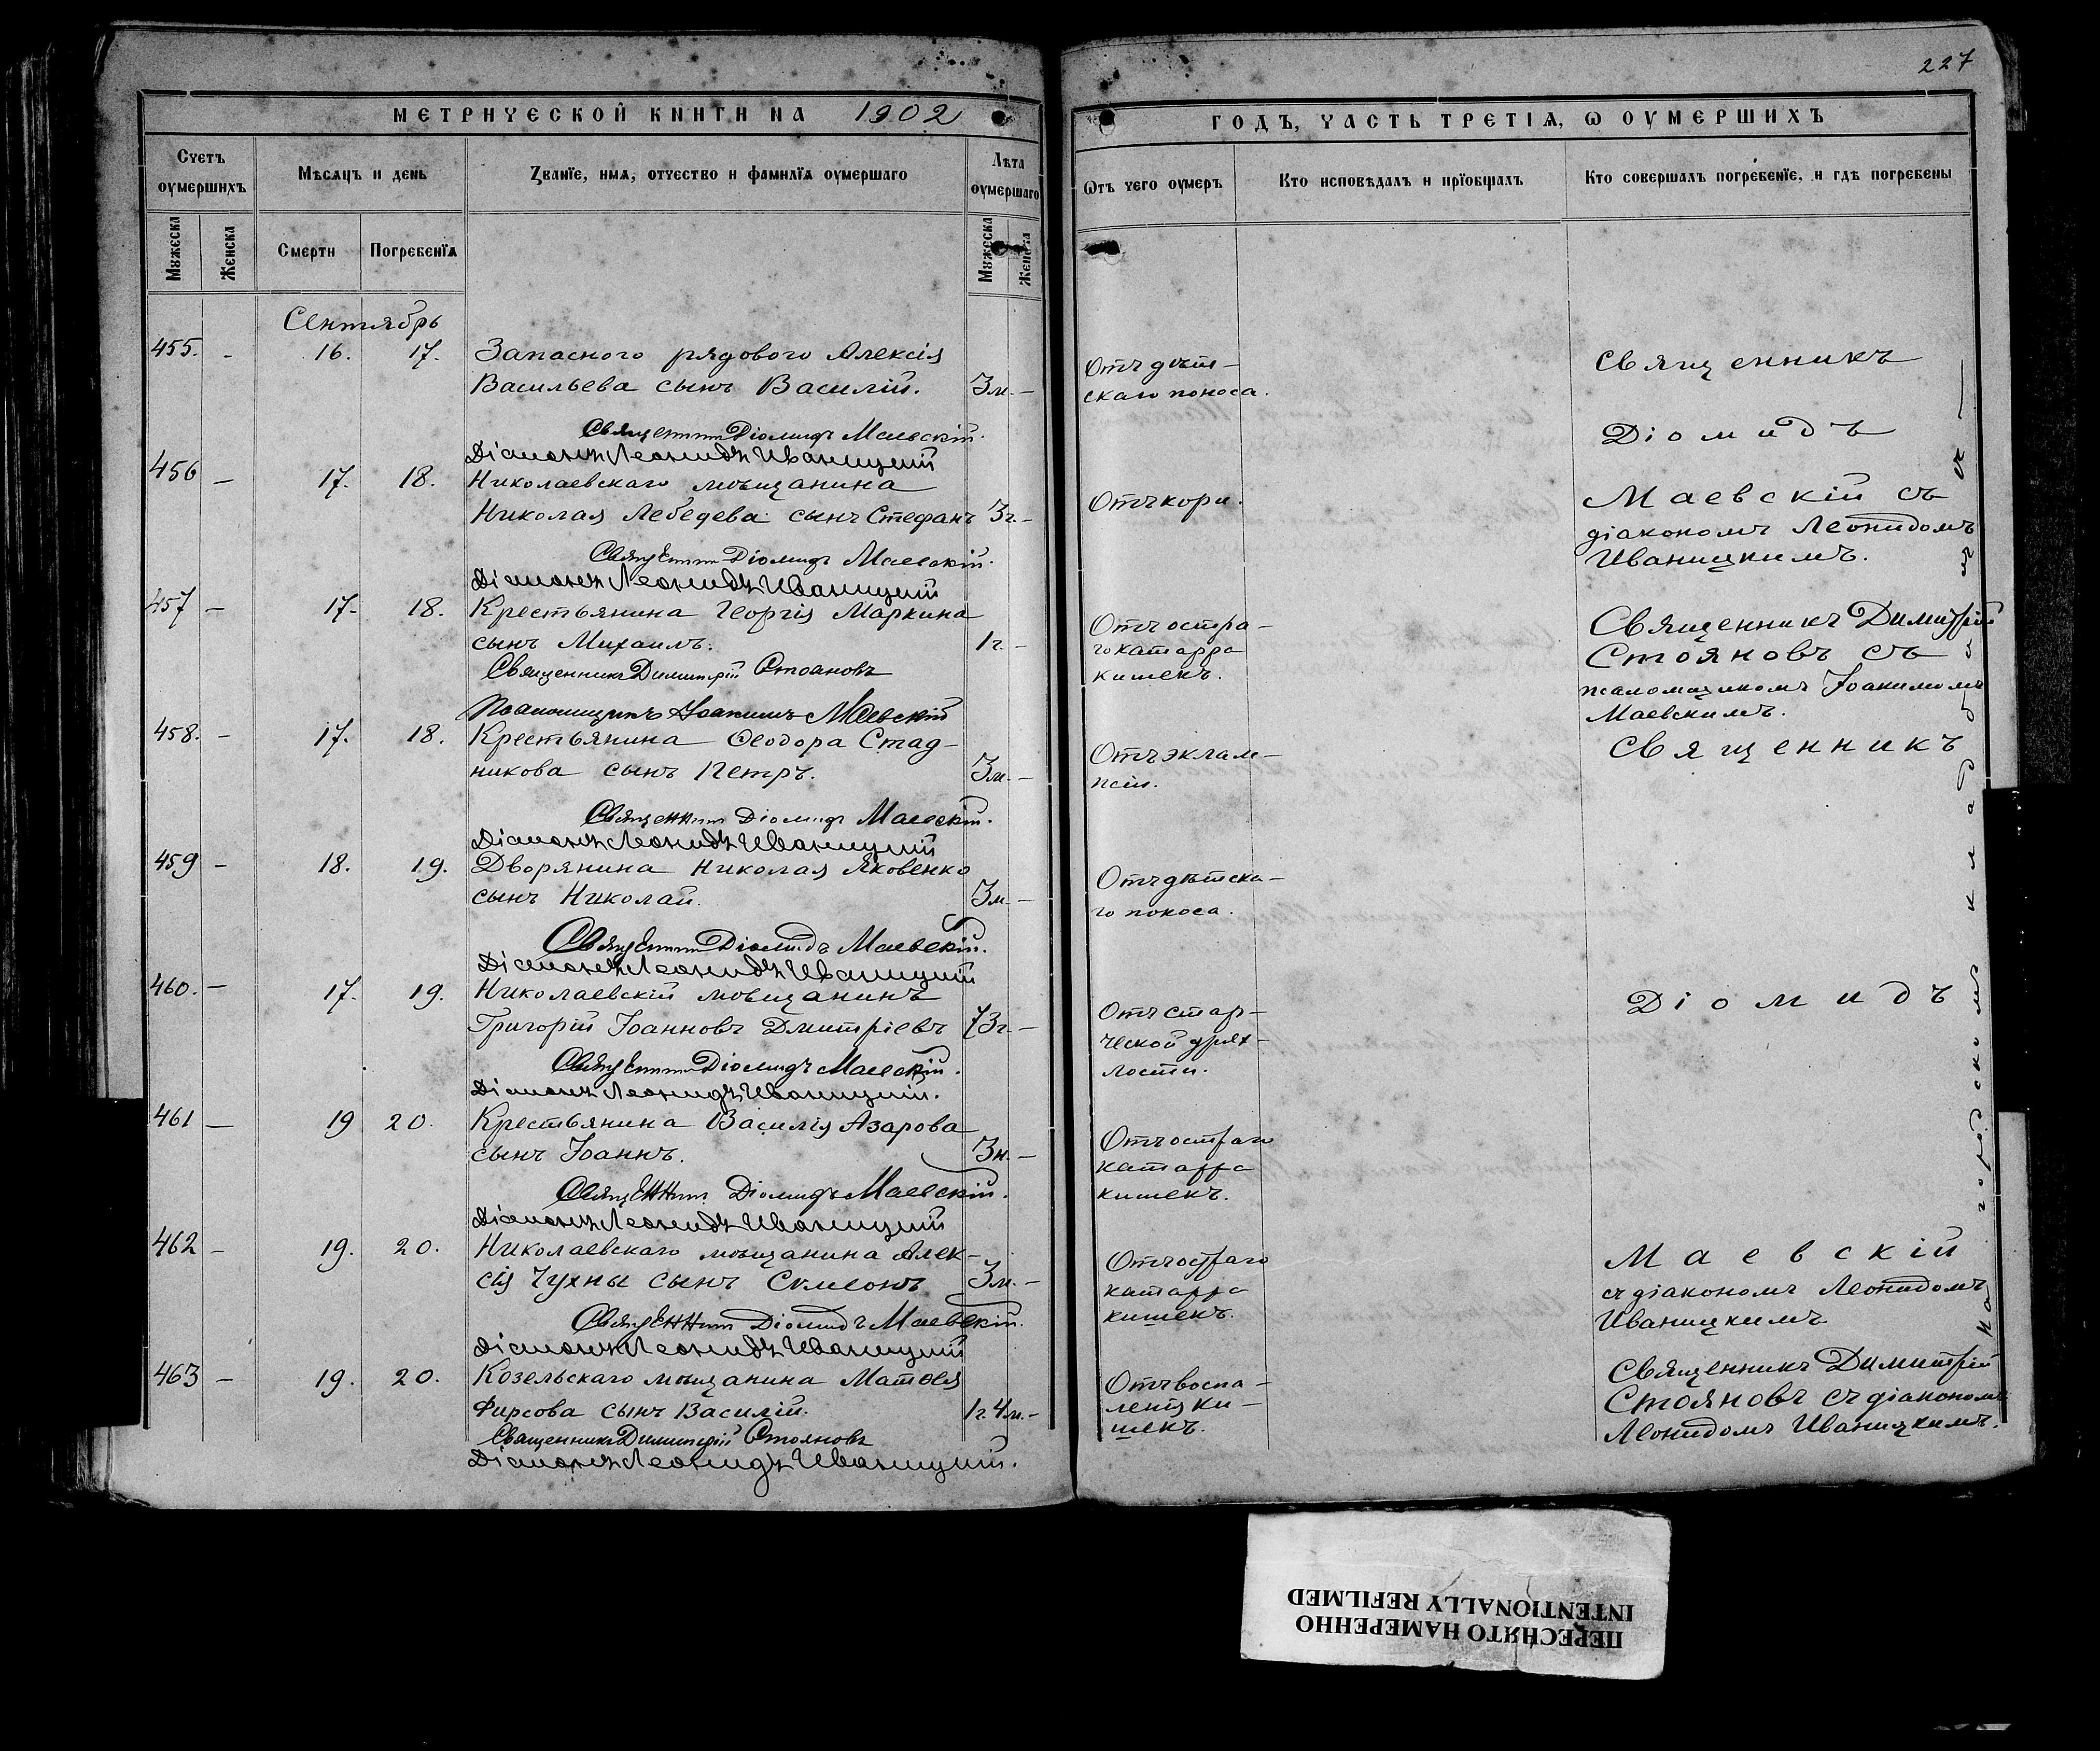 227
МЕТРИЧЕСКОЙ КНИГИ НА 1902
ГОДЪ, ЧАСТЬ ТРЕТІѦ, Ѡ ОУМЕРШИХЪ
Счетъ оумершихъ
Мѣсѧцъ и день
Званїе, имѧ, отчество и фамилїѧ оумершаго
Лѣта оумершаго
Ѿтъ чего оумеръ
Кто исповѣдалъ и прїобщалъ
Кто совершалъ погребенїе, и гдѣ погребены
Мужеска
Женска
Смерти
Погребенїѧ
Мужеска
Женска
Сентябрь
455. - 16. 17. Запаснаго рядового Алексія
Васильева сынъ Василій. 3м. -
Отъ дѣт-
скаго поноса.
Священникъ Діомидъ Маевскій.
Діаконъ Леонидъ Иваницкій
456 - 17. 18. Николаевскаго мѣщанина
Николая Лебедева сынъ Стефанъ 3г. -
Отъ кори.
Священникъ Діомидъ Маевскій.
Діаконъ Леонидъ Иваницкій
457 - 17. 18. Крестьянина Георгія Маркина
сынъ Михаилъ. 1г. -
Отъ остра-
го катарра
кишекъ.
Священникъ Димитрій Стояновъ
Псаломщикъ Іоакимъ Маевскій
458. - 17. 18. Крестьянина Ѳеодора Стад-
никова сынъ Петръ. 3м. -
Отъ эклам-
псіи.
Священникъ Діомидъ Маевскій.
Діаконъ Леонидъ Иваницкій
459 - 18. 19. Дворянина Николая Яковенко
сынъ Николай. 3м. -
Отъ дѣтска-
го поноса.
Священникъ Діомидъ Маевскій.
Діаконъ Леонидъ Иваницкій
460. - 17. 19. Николаевскій мѣщанинъ
Григорій Іоанновъ Дмитріевъ 73г. -
Отъ стар-
ческой дрях-
лости.
Священникъ Діомидъ Маевскій.
Діаконъ Леонидъ Иваницкій.
461 - 19 20. Крестьянина Василія Азарова
сынъ Іоаннъ. 3н. -
Отъ остраго
катарра
кишекъ.
Священникъ Діомидъ Маевскій.
Діаконъ Леонидъ Иваницкій
462 - 19. 20. Николаевскаго мѣщанина Алек-
сія Чухны сынъ Сѵмеонъ 3м. -
Отъ остраго
катарра
кишекъ.
Священникъ Діомидъ Маевскій.
Діаконъ Леонидъ Иваницкій
463 - 19. 20. Козельскаго мѣщанина Матѳея
Фирсова сынъ Василій. 1г. 4м. -
Отъ воспа-
ленія ки-
шекъ.
Священникъ Димитрій Стояновъ
Діаконъ Леонидъ Иваницкій.
Священникъ
Діомидъ
Маевскій съ
діакономъ Леонидомъ
Иваницкимъ.
Священникъ Димитрій
Стояновъ съ
псаломщикомъ Іоакимомъ
Маевскимъ.
Священникъ
Діомидъ
Маевскій
съ діакономъ Леонидомъ
Иваницкимъ
Священникъ Димитрій
Стояновъ съ діакономъ
Леонидомъ Иваницкимъ.
на городскомъ кладбищѣ
ПЕРЕСНЯТО НАМЕРЕННО
INTENTIONALLY REFILMED